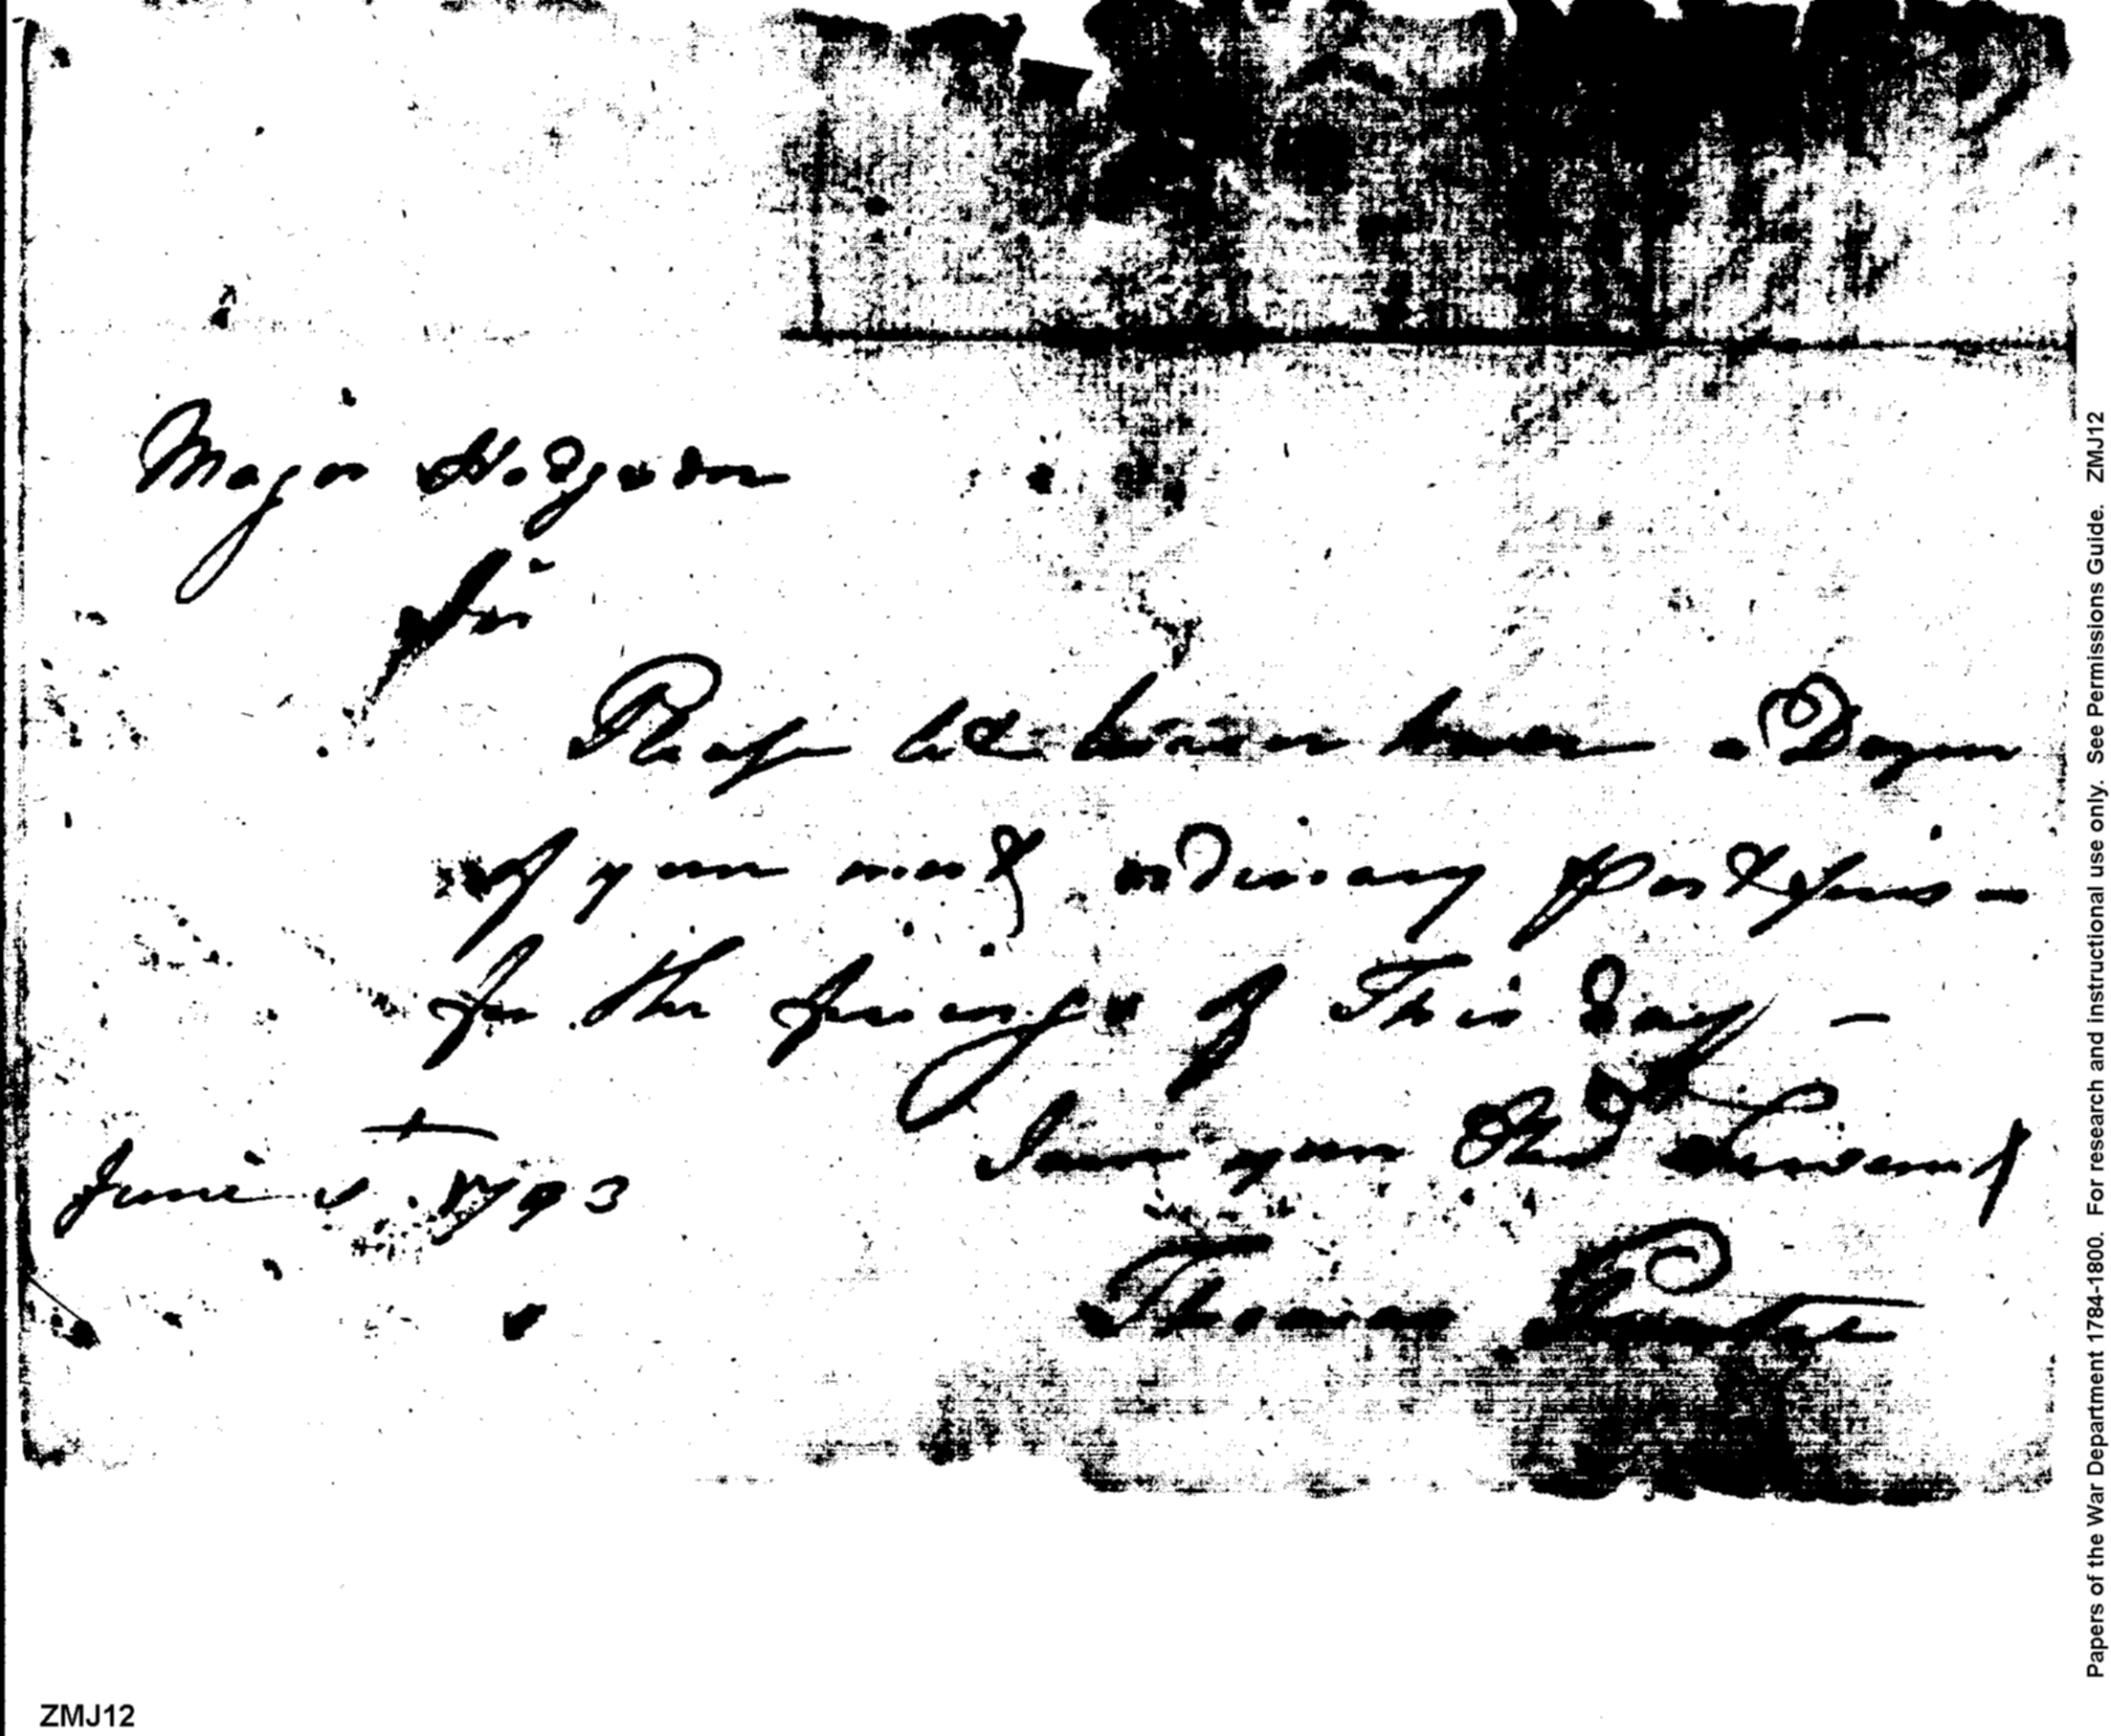 Major Hodgsdon
Sir
Please let bearer have a Dozen
of your most ordinary portfires –
for the firings of This day –
I am your Obd Servant
June 1793
Thomas
ZMJ12
Papers of the War Department 1784-1800. For research and instructional use only. See Permissions Guide. ZMJ12